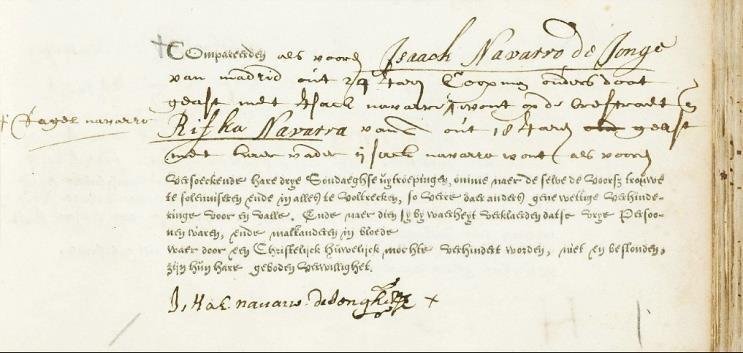 Compareerden als vooren Isaack Navarro de Jonge
van madrid out 24 Jaren Coopman ouders doot
geast met Isack navarro wont op de breestraet en
Rifka Navarra van out 18 Jaren geast
met haer vader ysack navarro wont als vooren
Versoeckende hare drye Sondaeghse uytroepingen, omme naer de selve de voorsz trouwe
te solemniseren ende in alles te voltrecken, so verre daer anders gene wettige verhinde-
ringe voor en valle. Ende naer dien sy by waerheyt verklaerden datse vrye Persoo-
nen waren, ende malkanderen in bloede
waer door een Christelijck huwelijck mochte verhindert worden, niet en bestonden,
zijn hun hare geboden verwillighet.
navarro de Jongh